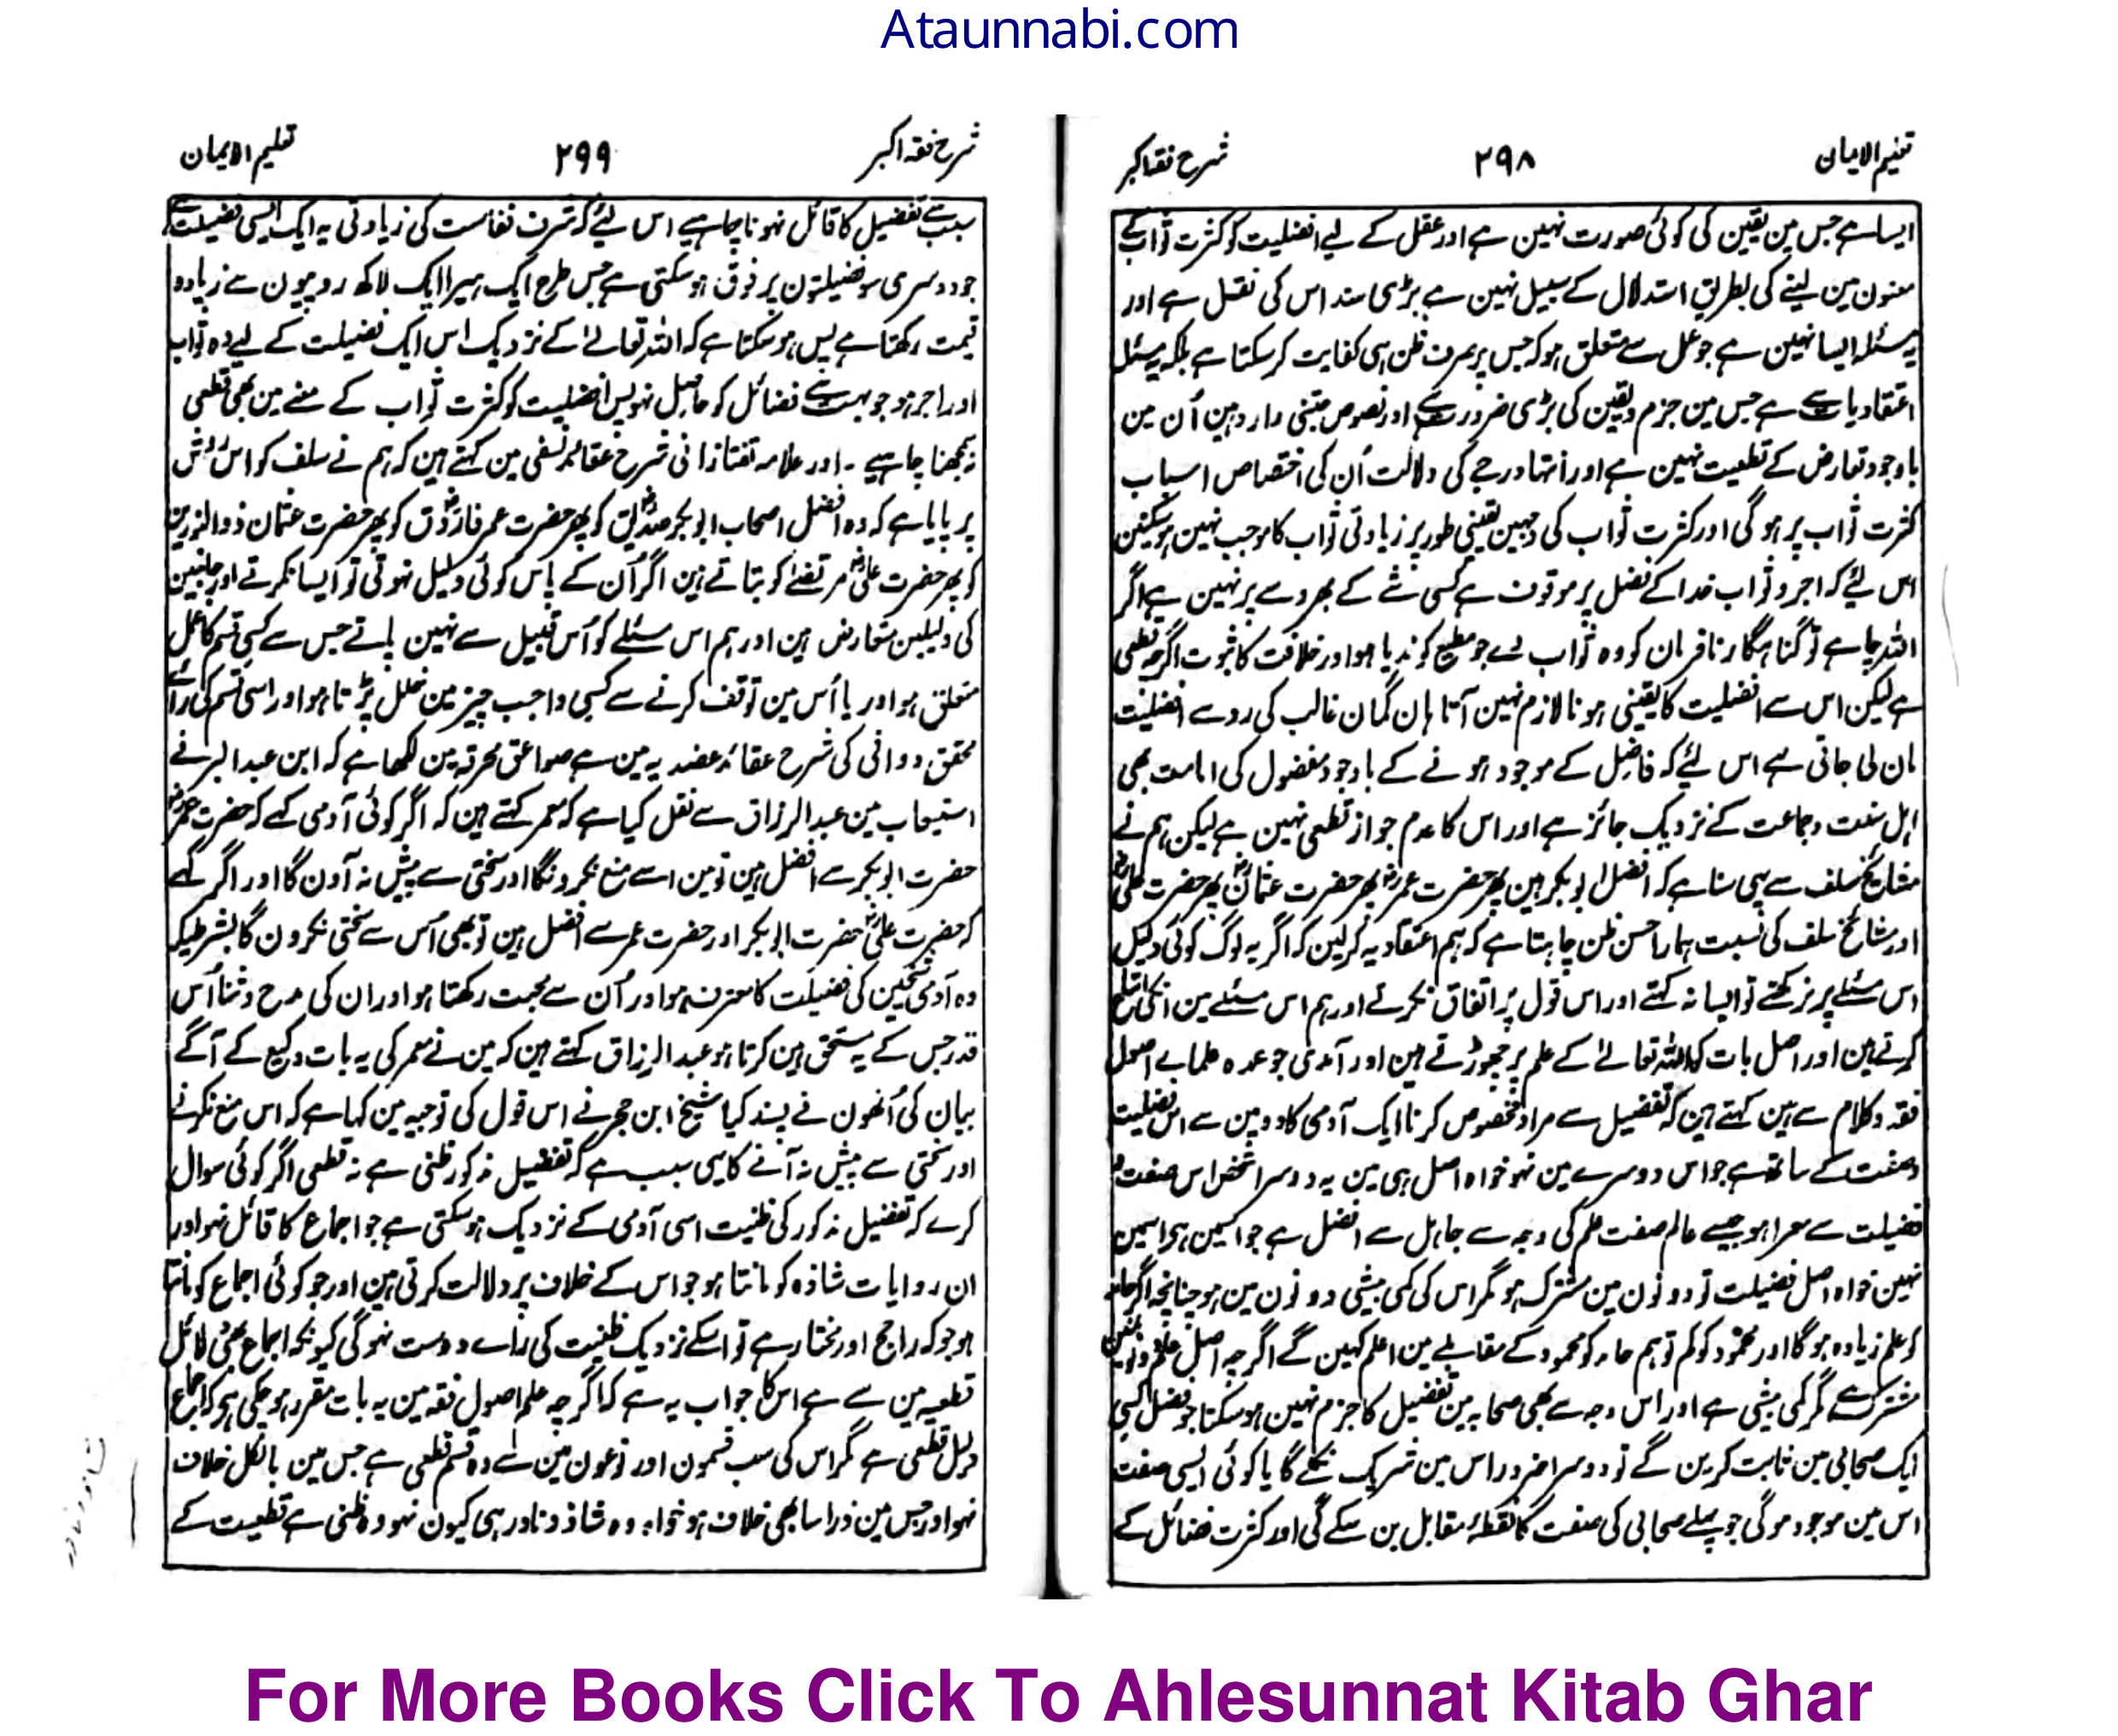 Ataunnabi.com
تعلیم الایمان ۲۹۸ شرح فقہ اکبر
ایسا ہے جس مین یقین کی کوئی صورت نہین ہے اور عقل کے لیے افضلیت کو کثرت ثواب کے
معنون مین لینے کی بطریق استدلال کے سبیل نہین ہے بڑی سند اس کی نقل ہے اور
یہ مسئلہ ایسا نہین ہے جو عمل سے متعلق ہو کہ جس پر صرف ظن ہی کفایت کر سکتا ہے بلکہ یہ مسئلہ
اعتقادیات سے ہے جس مین جزم و یقین کی بڑی ضرورت ہے اور نصوص جتنی وارد ہین اُن مین
باوجود تعارض کے قطعیت نہین ہے اور انتہا درجے کی دلالت اُن کی اختصاص اسباب
کثرت ثواب پر ہو گی اور کثرت ثواب کی وجہین یقینی طور پر زیادتی ثواب کا موجب نہین ہو سکتین
اس لیٔے کہ اجر و ثواب خدا کے فضل پر موقوف ہے کسی شے کے بھروسے پر نہین ہے اگر
اللہ چاہے تو گناہگار نافرمان کو وہ ثواب دے جو مطیع کو ندیا ہو اور خلافت کا ثبوت اگرچہ قطعی
ہے لیکن اس سے افضلیت کا یقینی ہونا لازم نہین آتا ہان گمان غالب کی رو سے افضلیت
مان لی جاتی ہے اس لیٔے کہ فاضل کے موجود ہونے کے باوجود مفضول کی امامت بھی
اہل سنت و جماعت کے نزدیک جائز ہے اور اس کا عدم جواز قطعی نہین ہے لیکن ہم نے
مشائخ سلف سے یہی سنا ہے کہ افضل ابو بکر ہین پھر حضرت عمرؓ پھر حضرت عثمانؓ پھر حضرت علیؓ
اور مشائخ سلف کی نسبت ہمارا حسن ظن چاہتا ہے کہ ہم اعتقاد یہ کر لین کہ اگر یہ لوگ کوئی دلیل
اس مسئلے پر نرکھتے تو ایسا نہ کہتے اور اس قول پر اتفاق نکرتے اور ہم اس مسئلے مین انکی اتباع
کرتے ہین اور اصل بات کو اللہ تعالےٰ کے علم پر چھوڑتے ہین اور آمدی جو عمدہ علماے اصول
فقہ و کلام سے ہین کہتے ہین کہ تفضیل سے مراد مخصوص کرنا ایک آدمی کا دو مین سے اس فضیلت
و صفت کے ساتھ ہے جو اس دوسرے مین نہو خواہ اصل ہی مین یہ دوسرا شخص اس صفت و
فضیلت سے معرا ہو جیسے عالم صفت علم کی وجہ سے جاہل سے افضل ہے جو اکمین ہے اسمین
نہین خواہ اصل فضیلت تو دونون مین مشترک ہو مگر اس کی کمی بیشی دونون مین ہو چنانچہ اگر حامد
کو علم زیادہ ہو گا اور محمود کو کم تو ہم حامد کو محمود کے مقابلے مین اعلم کہین گے اگرچہ اصل علم دونون مین
مشترک ہے مگر کمی بیشی ہے اور اس وجہ سے بھی صحابہ مین تفضیل کا جزم نہین ہو سکتا جو فضل کسی
ایک صحابی مین ثابت کرین گے تو دوسرا ضرور اس مین شریک نکلے گا یا کوئی ایسی صفت
اس مین موجود ہو گی جو پہلے صحابی کی صفت کا نقطۂ مقابل بن سکے گی اور کثرت فضائل کے
شرح فقہ اکبر ۲۹۹ تعلیم الایمان
سبب سے تفضیل کا قائل نہونا چاہیے اس لیٔے کہ شرف نفاست کی زیادتی یہ ایک ایسی فضیلت ہے
جو دوسری سو فضیلتون پر فوق ہو سکتی ہے جس طرح ایک ہیرا ایک لاکھ روپیون سے زیادہ
قیمت رکھتا ہے پس ہو سکتا ہے کہ اللہ تعالےٰ کے نزدیک اس ایک فضیلت کے لیے وہ ثواب
اور اجر ہو جو بہت سے فضائل کو حاصل نہو پس افضلیت کو کثرت ثواب کے معنے مین بھی قطعی
نہ سمجھنا چاہیے ۔ اور علامہ تفتازانی شرح عقائد نسفی مین کہتے ہین کہ ہم نے سلف کو اس روش
پر پایا ہے کہ وہ افضل اصحاب ابو بکر صدیقؓ کو پھر حضرت عمر فاروقؓ کو پھر حضرت عثمان ذوالنورین
کو پھر حضرت علیؓ مرتضےٰ کو بتاتے ہین اگر اُن کے پاس کوئی دلیل نہوتی تو ایسا نکرتے اور جانبین
کی دلیلین متعارض ہین اور ہم اس مسئلے کو اُس قبیل سے نہین پاتے جس سے کسی قسم کا عمل
متعلق ہو اور یا اُس مین توقف کرنے سے کسی واجب چیز مین خلل پڑتا ہو اور اسی قسم کی رائے
محقق دوانی کی شرح عقائد عضدیہ مین ہے صواعق محرقہ مین لکھا ہے کہ ابن عبدالبر نے
استیعاب مین عبدالرزاق سے نقل کیا ہے کہ معمر کہتے ہین کہ اگر کوئی آدمی کہے کہ حضرت عمرؓ
حضرت ابو بکر سے افضل ہین تو مین اسے منع نکرونگا اور سختی سے پیش نہ آون گا اور اگر کہے
کہ حضرت علیؓ حضرت ابو بکر اور حضرت عمر سے افضل ہین تو بھی اُس سے سختی نکرون گا بشرطیکہ
وہ آدمی شیخین کی فضیلت کا معترف ہو اور اُن سے محبت رکھتا ہو اور ان کی مدح و ثنا اُس
قدر جس کے یہ مستحق ہین کرتا ہو عبدالرزاق کہتے ہین کہ مین نے معمر کی یہ بات وکیع کے آگے
بیان کی اُنھون نے پسند کیا شیخ ابن حجر نے اس قول کی توجیہ مین کہا ہے کہ اس منع نکرنے
اور سختی سے پیش نہ آنے کا یہی سبب ہے کہ تفضیل مذکور ظنی ہے نہ قطعی اگر کوئی سوال
کرے کہ تفضیل مذکور کی ظنیت اسی آدمی کے نزدیک ہو سکتی ہے جو اجماع کا قائل نہو اور
ان روایات شاذہ کو مانتا ہو جو اس کے خلاف پر دلالت کرتی ہین اور جو کوئی اجماع کو مانتا
ہو جو کہ راجح اور مختار ہے تو اسکے نزدیک ظنیت کی راے درست نہو گی کیونکہ اجماع بھی دلائل
قطعیہ مین سے ہے اس کا جواب یہ ہے کہ اگرچہ علم اصول فقہ مین یہ بات مقرر ہو چکی ہے کہ اجماع
دلیل قطعی ہے مگر اس کی سب قسمون اور نوعون مین سے وہ قسم قطعی ہے جس مین بالکل خلاف
نہو اور جس مین ذرا سا بھی خلاف ہو خواہ وہ شاذ و نادر ہی کیون نہو وہ ظنی ہے قطعیت کے
For More Books Click To Ahlesunnat Kitab Ghar